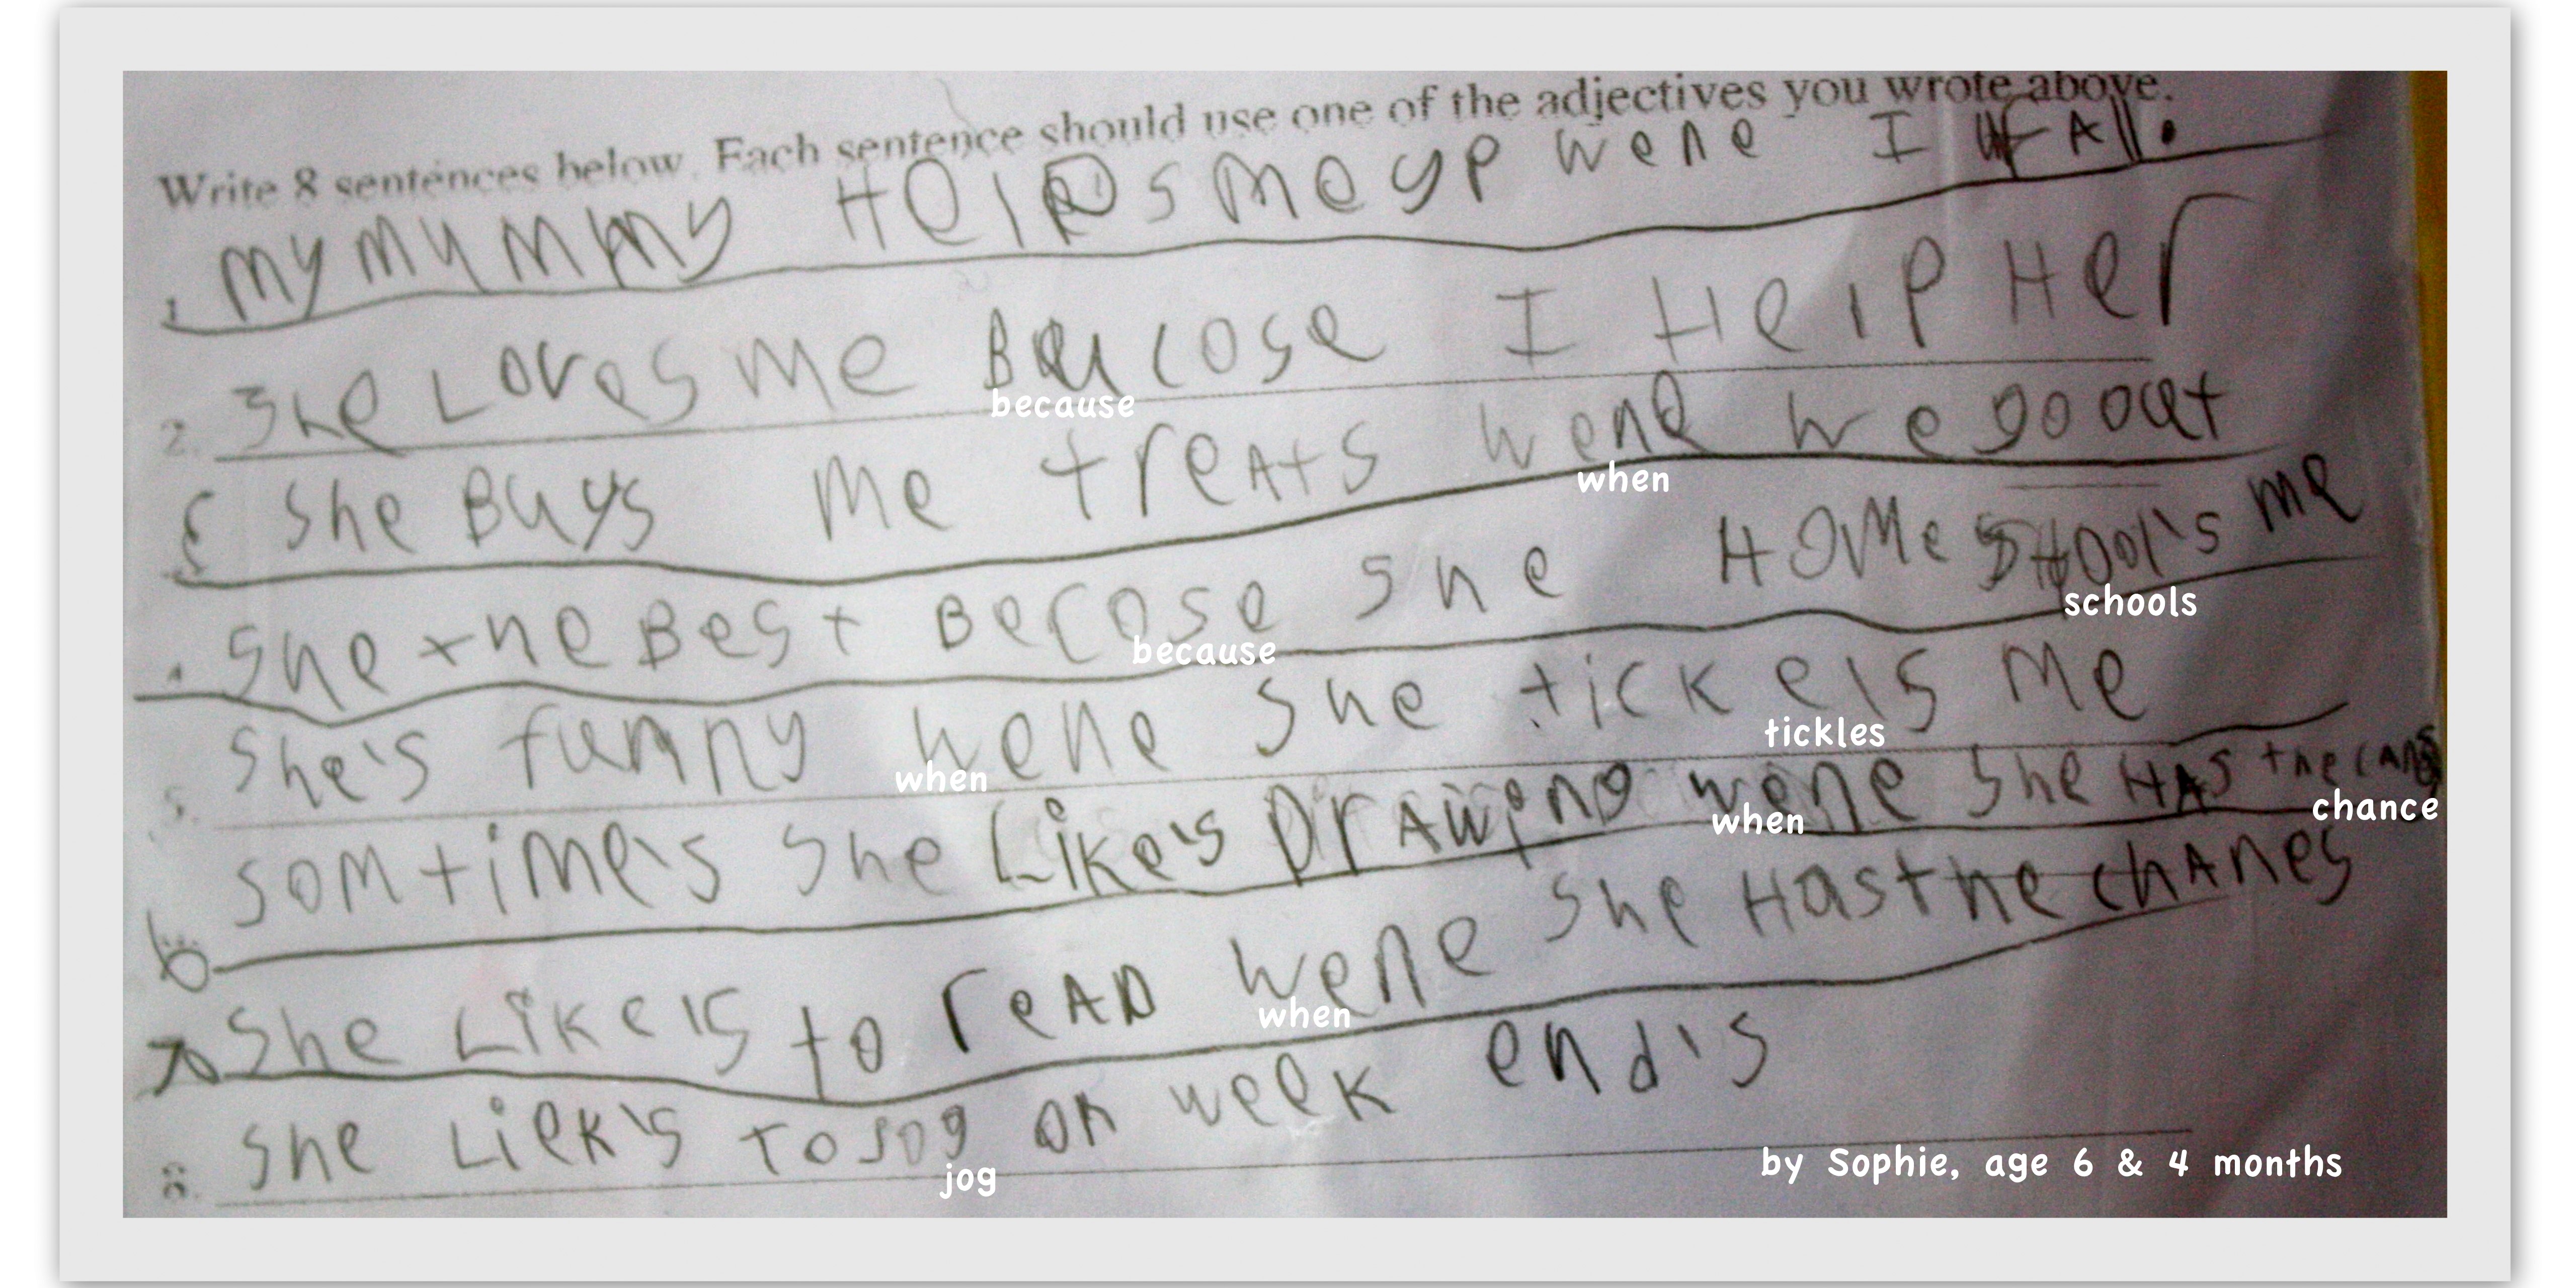 Write 8 sentences below. Each sentence should use one of the adjectives you wrote above.
1. my mummy Helps me up wene I fAll.
2. She Loves me Becose I Help Her
because
She Buys me treAts wene we go out
when
4. She the Best Becose she HOMe SHOol's me
because schools
5. She's funny wene She tickels Me
when tickles
6 SOMtime's She Like's DrAwing wene She HAS the cans
when chance
7 She Likels to reAD wene She Hasthe chAnes
when
8. She Liek's to jog on week end's
jog
by Sophie, age 6 & 4 months